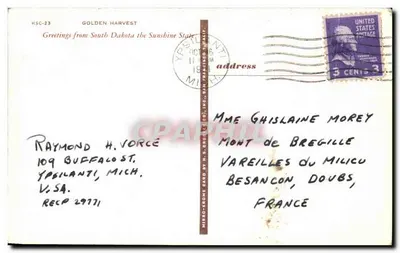 VSC-23 GOLDEN HARVEST
Greetings from South Dakota the Sunshine State
YPSILANTI
MICH
UNITED STATES
POSTAGE
3 CENTS 3
address
RAYMOND H. VORCE
109 BUFFALO ST.
YPSILANTI, MICH.
U.S.A.
RECP 29771
MME GHISLAINE MOREY
MONT de BREGILLE
VAREILLES du MILIEU
BESANCON, DOUBS,
FRANCE